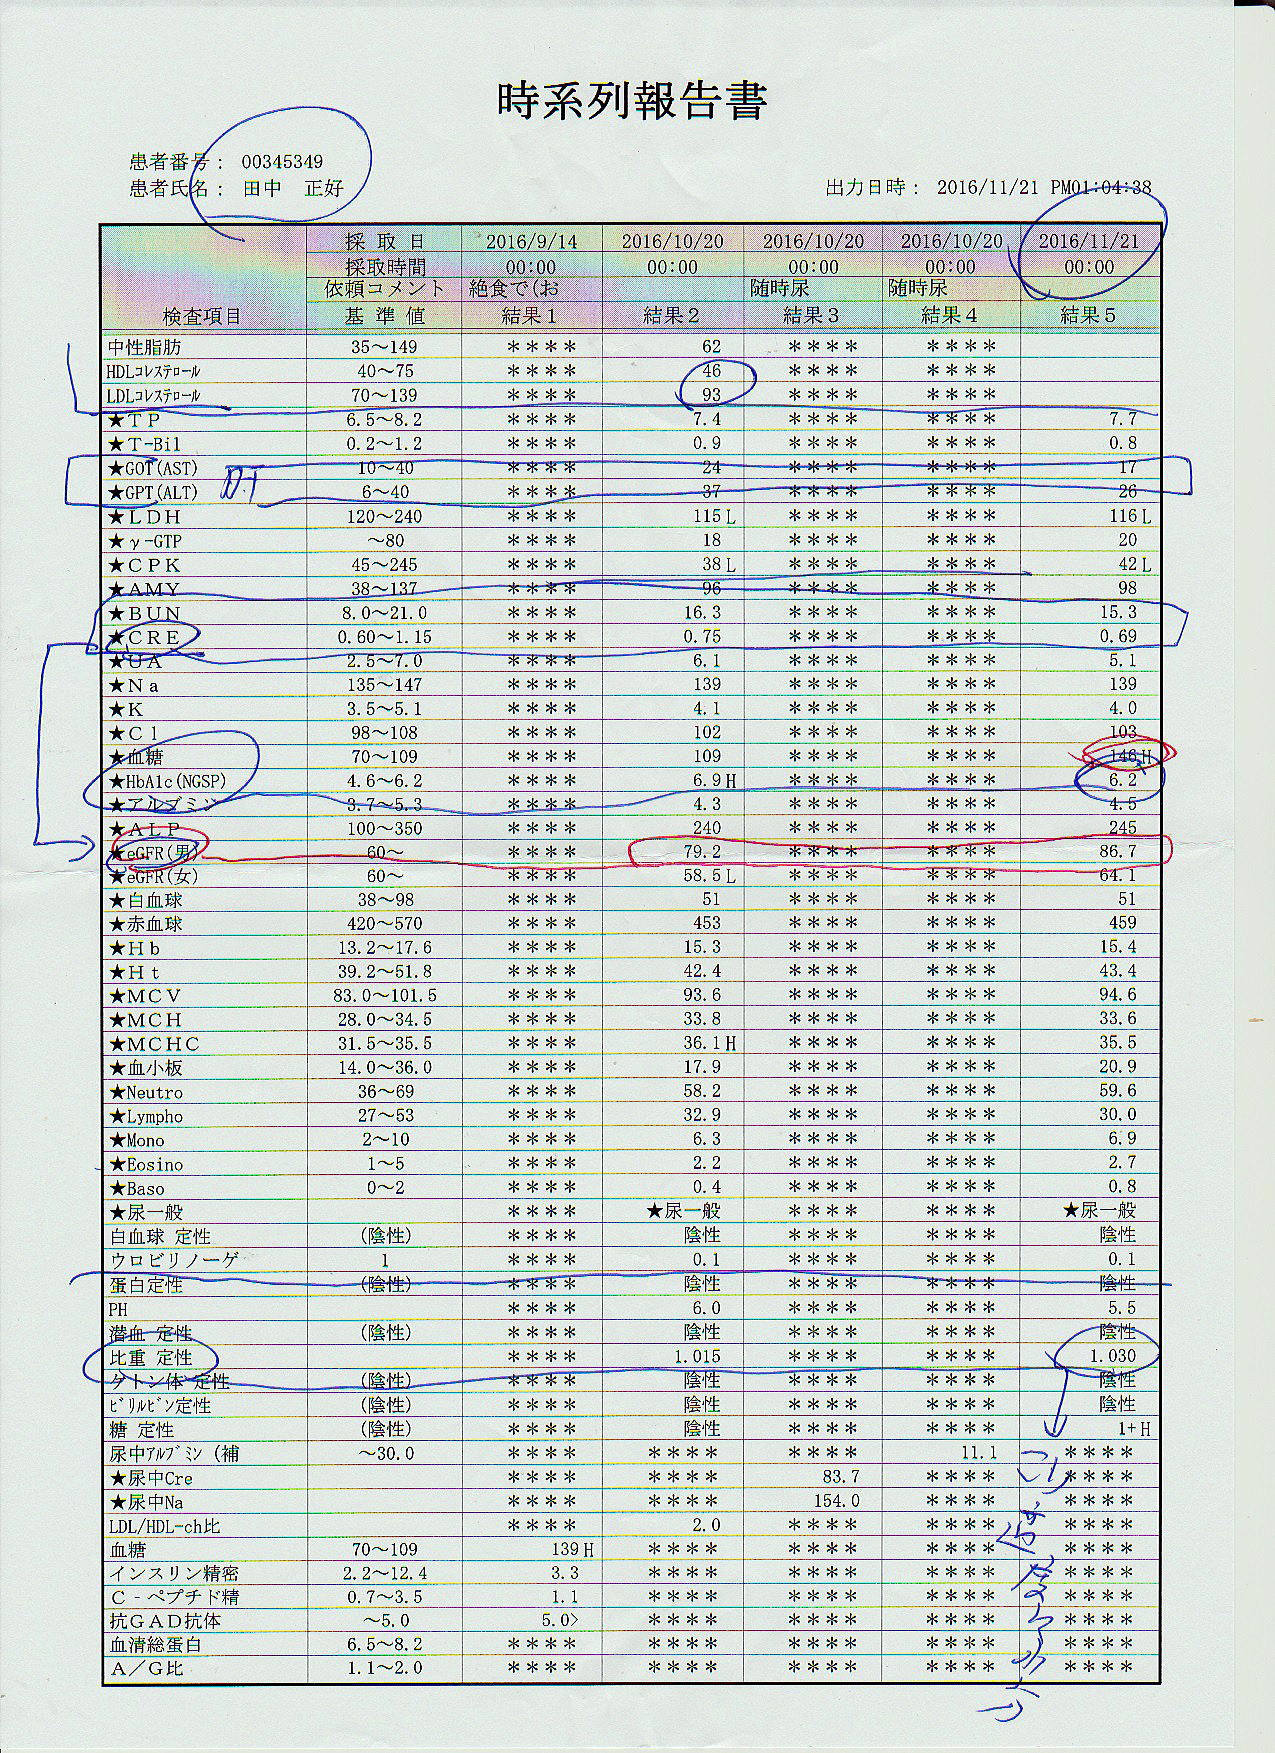 時系列報告書
患者番号： 00345349
患者氏名： 田中 正好
出力日時： 2016/11/21 PM01:04:38
採 取 日 2016/9/14 2016/10/20 2016/10/20 2016/10/20 2016/11/21
採取時間 00:00 00:00 00:00 00:00 00:00
依頼コメント 絶食で(お 随時尿 随時尿
検査項目 基 準 値 結果１ 結果２ 結果３ 結果４ 結果５
中性脂肪 35～149 ＊＊＊＊ 62 ＊＊＊＊ ＊＊＊＊
HDLｺﾚｽﾃﾛｰﾙ 40～75 ＊＊＊＊ 46 ＊＊＊＊ ＊＊＊＊
LDLｺﾚｽﾃﾛｰﾙ 70～139 ＊＊＊＊ 93 ＊＊＊＊ ＊＊＊＊
★ＴＰ 6.5～8.2 ＊＊＊＊ 7.4 ＊＊＊＊ ＊＊＊＊ 7.7
★Ｔ-Bil 0.2～1.2 ＊＊＊＊ 0.9 ＊＊＊＊ ＊＊＊＊ 0.8
★GOT(AST) 10～40 ＊＊＊＊ 24 ＊＊＊＊ ＊＊＊＊ 17
★GPT(ALT) 6～40 ＊＊＊＊ 37 ＊＊＊＊ ＊＊＊＊ 26
★ＬＤＨ 120～240 ＊＊＊＊ 115 L ＊＊＊＊ ＊＊＊＊ 116 L
★γ-GTP ～80 ＊＊＊＊ 18 ＊＊＊＊ ＊＊＊＊ 20
★ＣＰＫ 45～245 ＊＊＊＊ 38 L ＊＊＊＊ ＊＊＊＊ 42 L
★AMY 38～137 ＊＊＊＊ 96 ＊＊＊＊ ＊＊＊＊ 98
★ＢＵＮ 8.0～21.0 ＊＊＊＊ 16.3 ＊＊＊＊ ＊＊＊＊ 15.3
★ＣＲＥ 0.60～1.15 ＊＊＊＊ 0.75 ＊＊＊＊ ＊＊＊＊ 0.69
★ＵＡ 2.5～7.0 ＊＊＊＊ 6.1 ＊＊＊＊ ＊＊＊＊ 5.1
★Ｎａ 135～147 ＊＊＊＊ 139 ＊＊＊＊ ＊＊＊＊ 139
★Ｋ 3.5～5.1 ＊＊＊＊ 4.1 ＊＊＊＊ ＊＊＊＊ 4.0
★Ｃｌ 98～108 ＊＊＊＊ 102 ＊＊＊＊ ＊＊＊＊ 103
★血糖 70～109 ＊＊＊＊ 109 ＊＊＊＊ ＊＊＊＊ 146 H
★HbA1c(NGSP) 4.6～6.2 ＊＊＊＊ 6.9 H ＊＊＊＊ ＊＊＊＊ 6.2
★アルブミン 3.7～5.3 ＊＊＊＊ 4.3 ＊＊＊＊ ＊＊＊＊ 4.5
★ＡＬＰ 100～350 ＊＊＊＊ 240 ＊＊＊＊ ＊＊＊＊ 245
★eGFR(男) 60～ ＊＊＊＊ 79.2 ＊＊＊＊ ＊＊＊＊ 86.7
★eGFR(女) 60～ ＊＊＊＊ 58.5 L ＊＊＊＊ ＊＊＊＊ 64.1
★白血球 38～98 ＊＊＊＊ 51 ＊＊＊＊ ＊＊＊＊ 51
★赤血球 420～570 ＊＊＊＊ 453 ＊＊＊＊ ＊＊＊＊ 459
★Ｈｂ 13.2～17.6 ＊＊＊＊ 15.3 ＊＊＊＊ ＊＊＊＊ 15.4
★Ｈｔ 39.2～51.8 ＊＊＊＊ 42.4 ＊＊＊＊ ＊＊＊＊ 43.4
★ＭＣＶ 83.0～101.5 ＊＊＊＊ 93.6 ＊＊＊＊ ＊＊＊＊ 94.6
★ＭＣＨ 28.0～34.5 ＊＊＊＊ 33.8 ＊＊＊＊ ＊＊＊＊ 33.6
★ＭＣＨＣ 31.5～35.5 ＊＊＊＊ 36.1 H ＊＊＊＊ ＊＊＊＊ 35.5
★血小板 14.0～36.0 ＊＊＊＊ 17.9 ＊＊＊＊ ＊＊＊＊ 20.9
★Neutro 36～69 ＊＊＊＊ 58.2 ＊＊＊＊ ＊＊＊＊ 59.6
★Lympho 27～53 ＊＊＊＊ 32.9 ＊＊＊＊ ＊＊＊＊ 30.0
★Mono 2～10 ＊＊＊＊ 6.3 ＊＊＊＊ ＊＊＊＊ 6.9
★Eosino 1～5 ＊＊＊＊ 2.2 ＊＊＊＊ ＊＊＊＊ 2.7
★Baso 0～2 ＊＊＊＊ 0.4 ＊＊＊＊ ＊＊＊＊ 0.8
★尿一般 ＊＊＊＊ ★尿一般 ＊＊＊＊ ＊＊＊＊ ★尿一般
白血球 定性 (陰性) ＊＊＊＊ 陰性 ＊＊＊＊ ＊＊＊＊ 陰性
ウロビリノーゲ 1 ＊＊＊＊ 0.1 ＊＊＊＊ ＊＊＊＊ 0.1
蛋白定性 (陰性) ＊＊＊＊ 陰性 ＊＊＊＊ ＊＊＊＊ 陰性
PH ＊＊＊＊ 6.0 ＊＊＊＊ ＊＊＊＊ 5.5
潜血 定性 (陰性) ＊＊＊＊ 陰性 ＊＊＊＊ ＊＊＊＊ 陰性
比重 定性 ＊＊＊＊ 1.015 ＊＊＊＊ ＊＊＊＊ 1.030
ケトン体 定性 (陰性) ＊＊＊＊ 陰性 ＊＊＊＊ ＊＊＊＊ 陰性
ﾋﾞﾘﾙﾋﾞﾝ定性 (陰性) ＊＊＊＊ 陰性 ＊＊＊＊ ＊＊＊＊ 陰性
糖 定性 (陰性) ＊＊＊＊ 陰性 ＊＊＊＊ ＊＊＊＊ 1+ H
尿中ｱﾙﾌﾞﾐﾝ (補 ～30.0 ＊＊＊＊ ＊＊＊＊ ＊＊＊＊ 11.1 ＊＊＊＊
★尿中Cre ＊＊＊＊ ＊＊＊＊ 83.7 ＊＊＊＊ ＊＊＊＊
★尿中Na ＊＊＊＊ ＊＊＊＊ 154.0 ＊＊＊＊ ＊＊＊＊
LDL/HDL-ch比 ＊＊＊＊ 2.0 ＊＊＊＊ ＊＊＊＊ ＊＊＊＊
血糖 70～109 139 H ＊＊＊＊ ＊＊＊＊ ＊＊＊＊ ＊＊＊＊
インスリン精密 2.2～12.4 3.3 ＊＊＊＊ ＊＊＊＊ ＊＊＊＊ ＊＊＊＊
Ｃ‐ペプチド精 0.7～3.5 1.1 ＊＊＊＊ ＊＊＊＊ ＊＊＊＊ ＊＊＊＊
抗ＧＡＤ抗体 ～5.0 5.0> ＊＊＊＊ ＊＊＊＊ ＊＊＊＊ ＊＊＊＊
血清総蛋白 6.5～8.2 ＊＊＊＊ ＊＊＊＊ ＊＊＊＊ ＊＊＊＊ ＊＊＊＊
Ａ／Ｇ比 1.1～2.0 ＊＊＊＊ ＊＊＊＊ ＊＊＊＊ ＊＊＊＊ ＊＊＊＊